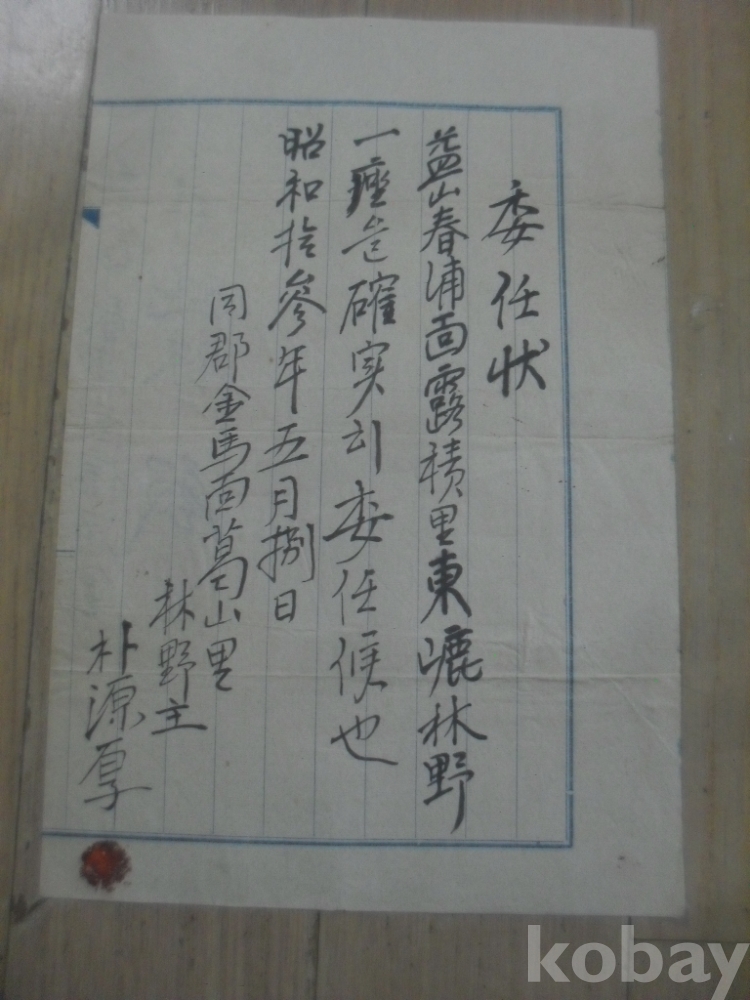 委任状
益山春浦面露積里東嶝林野
一座를確実히委任候也
昭和拾參年五月捌日
同郡金馬面葛山里
林野主
朴源厚
kobay